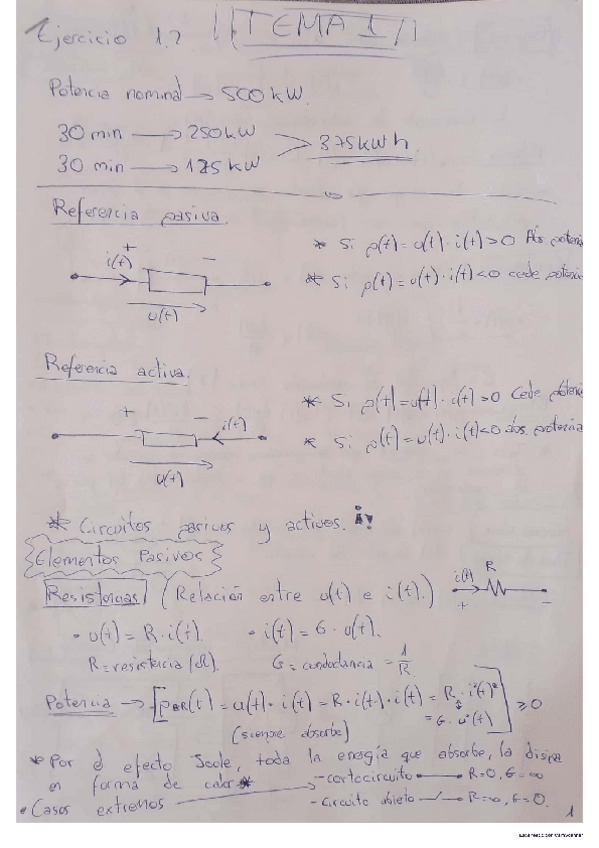 Ejercicio 1.2
TEMA 1
Potencia nominal → 500 kW.
30 min → 250 kW
30 min → 125 kW
375 kWh
Referencia pasiva.
+ -
i(t)
u(t)
* Si p(t) = u(t) · i(t) > 0 Abs potencia
* Si p(t) = u(t) · i(t) < 0 cede potencia
Referencia activa.
+ - i(t)
u(t)
* Si p(t) = u(t) · i(t) > 0 Cede potencia
* Si p(t) = u(t) · i(t) < 0 abs. potencia
* Circuitos pasivos y activos.
Elementos Pasivos
Resistencias (Relación entre u(t) e i(t).)
i(t) R
+ -
· u(t) = R · i(t). · i(t) = G · u(t).
R = resistencia (Ω). G = conductancia = 1/R
Potencia → [p_BR(t) = u(t) · i(t) = R · i(t) · i(t) = R · i(t)² = G · u²(t)] ≥ 0
(siempre absorbe)
* Por el efecto Joule, toda la energía que absorbe, la disipa
en forma de calor *
· Casos extremos
- cortocircuito R=0, G=∞
- Circuito abierto R=∞, G=0.
1